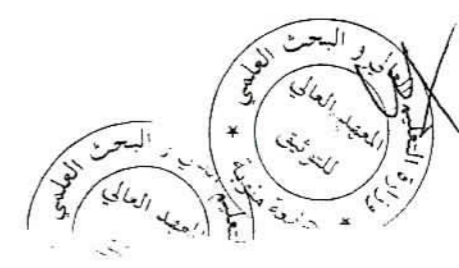 وزارة التعليم العالي و البحث العلمي
* جامعة منوبة *
المعهد العالي
للتوثيق
التعليم العالي و البحث العلمي
المعهد العالي